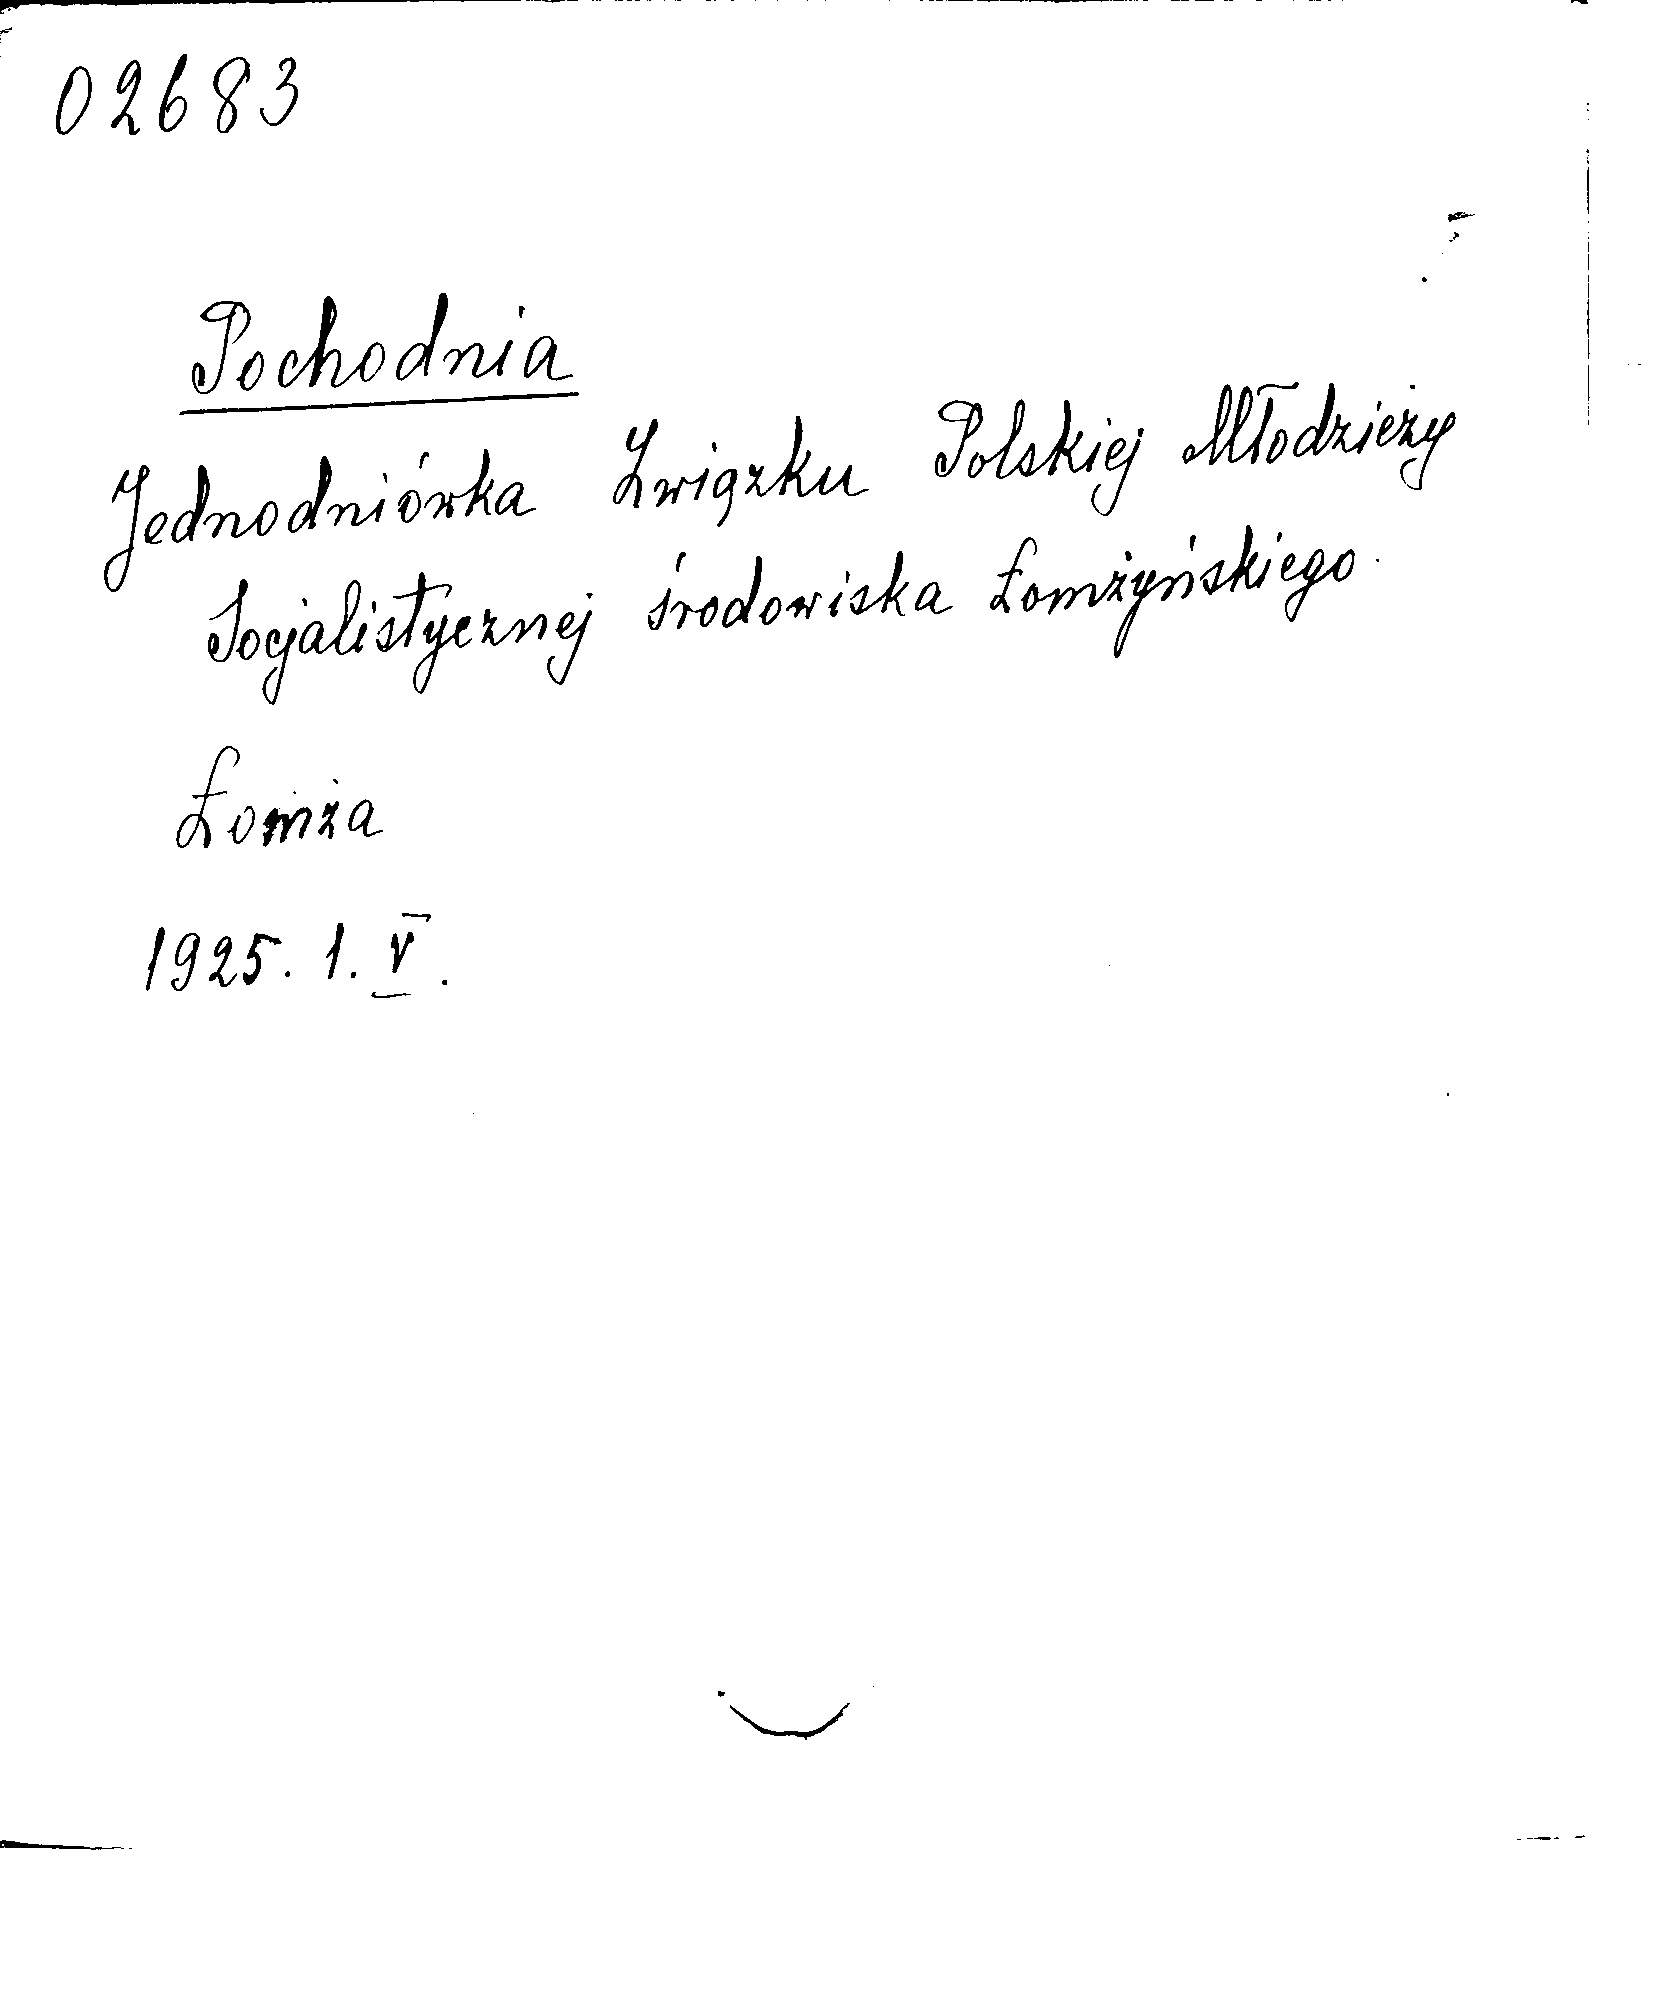 02683
Pochodnia
Jednodniówka Związku Polskiej Młodzieży
Socjalistycznej środowiska Łomżyńskiego.
Łomża
1925. 1. V.